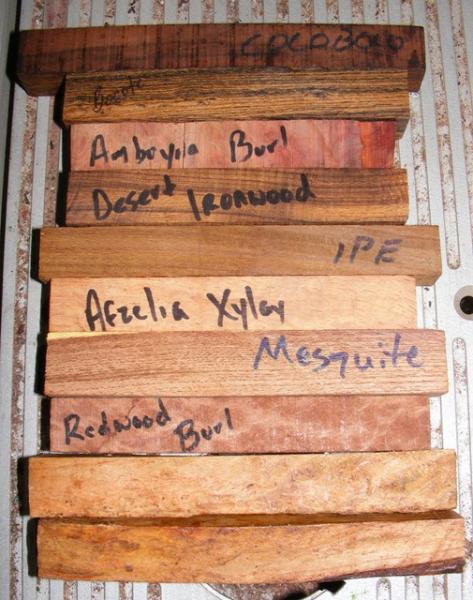 COCOBOLO
Bocote
Amboyna Burl
Desert Ironwood
IPE
Afzelia Xylay
Mesquite
Redwood Burl